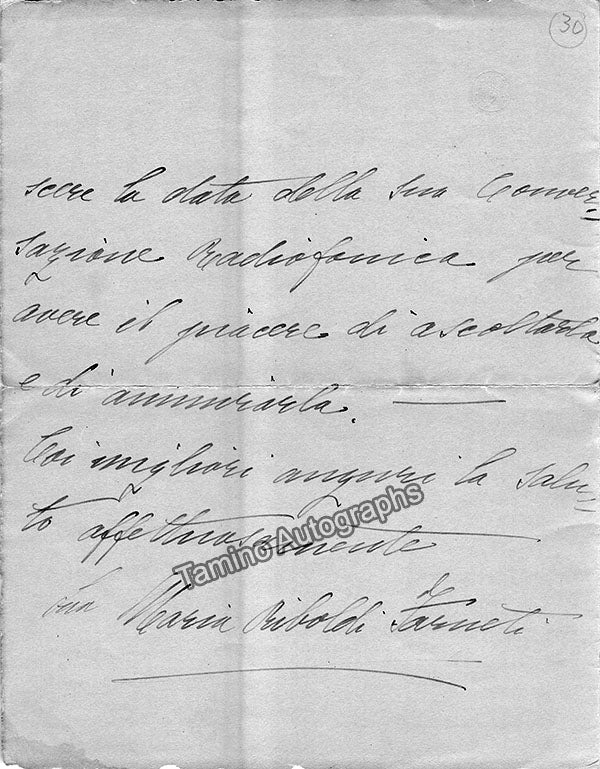 30
scere la data della sua Conver=
sazione Radiofonica per
avere il piacere di ascoltarla
e di ammirarla.
Coi migliori auguri la salu=
to affettuosamente
Sua Maria Riboldi Farneti
Tamino Autographs